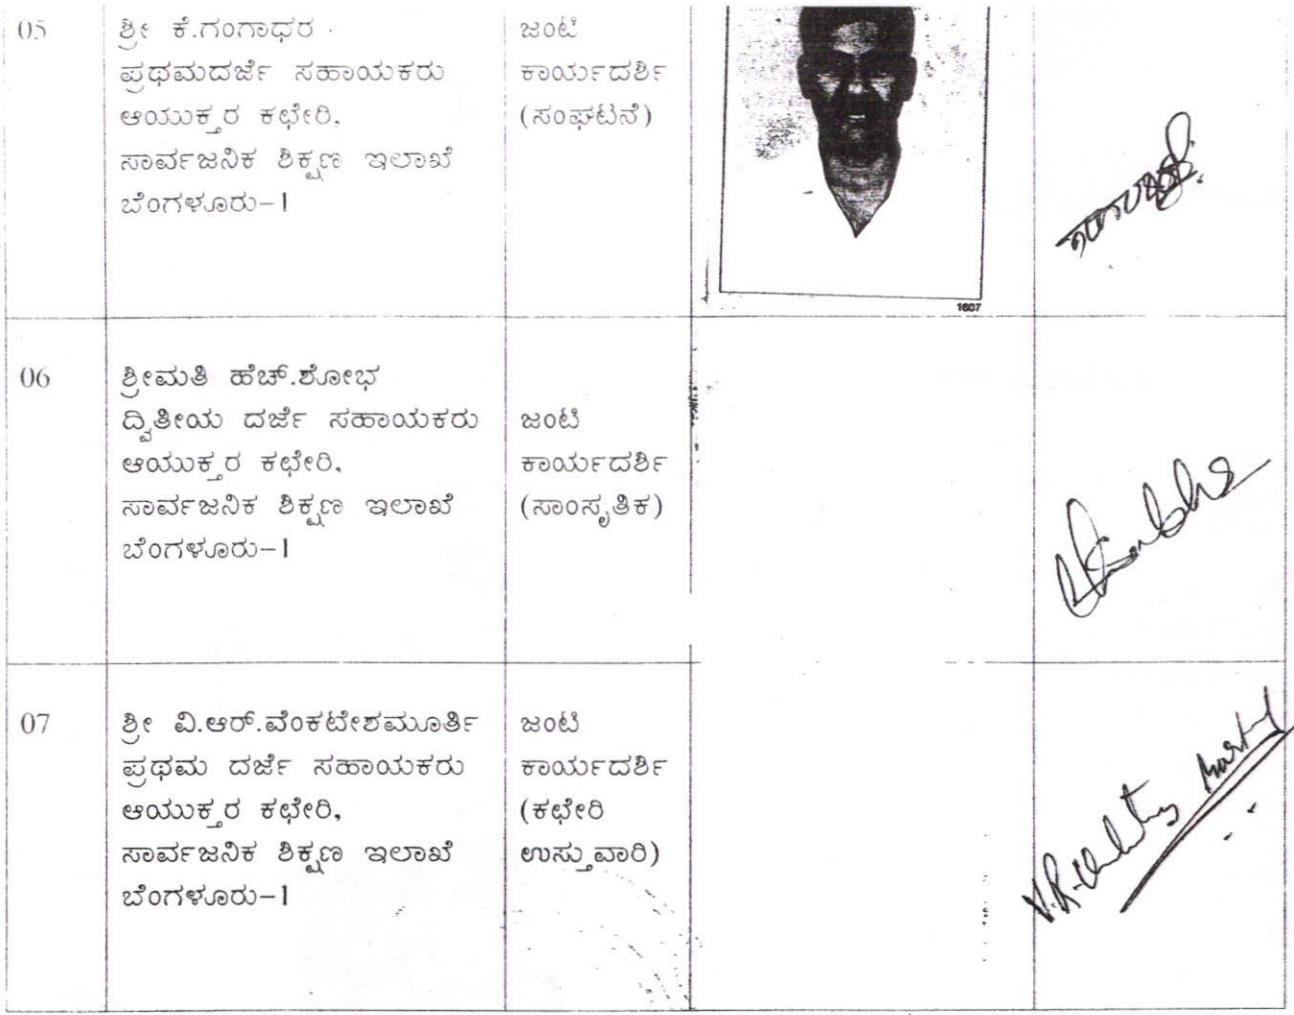 05
ಶ್ರೀ ಕೆ.ಗಂಗಾಧರ
ಪ್ರಥಮದರ್ಜೆ ಸಹಾಯಕರು
ಆಯುಕ್ತರ ಕಛೇರಿ,
ಸಾರ್ವಜನಿಕ ಶಿಕ್ಷಣ ಇಲಾಖೆ
ಬೆಂಗಳೂರು-1
ಜಂಟಿ
ಕಾರ್ಯದರ್ಶಿ
(ಸಂಘಟನೆ)
1607
06
ಶ್ರೀಮತಿ ಹೆಚ್.ಶೋಭ
ದ್ವಿತೀಯ ದರ್ಜೆ ಸಹಾಯಕರು
ಆಯುಕ್ತರ ಕಛೇರಿ,
ಸಾರ್ವಜನಿಕ ಶಿಕ್ಷಣ ಇಲಾಖೆ
ಬೆಂಗಳೂರು-1
ಜಂಟಿ
ಕಾರ್ಯದರ್ಶಿ
(ಸಾಂಸೃತಿಕ)
07
ಶ್ರೀ ವಿ.ಆರ್.ವೆಂಕಟೇಶಮೂರ್ತಿ
ಪ್ರಥಮ ದರ್ಜೆ ಸಹಾಯಕರು
ಆಯುಕ್ತರ ಕಛೇರಿ,
ಸಾರ್ವಜನಿಕ ಶಿಕ್ಷಣ ಇಲಾಖೆ
ಬೆಂಗಳೂರು-1
ಜಂಟಿ
ಕಾರ್ಯದರ್ಶಿ
(ಕಛೇರಿ
ಉಸ್ತುವಾರಿ)